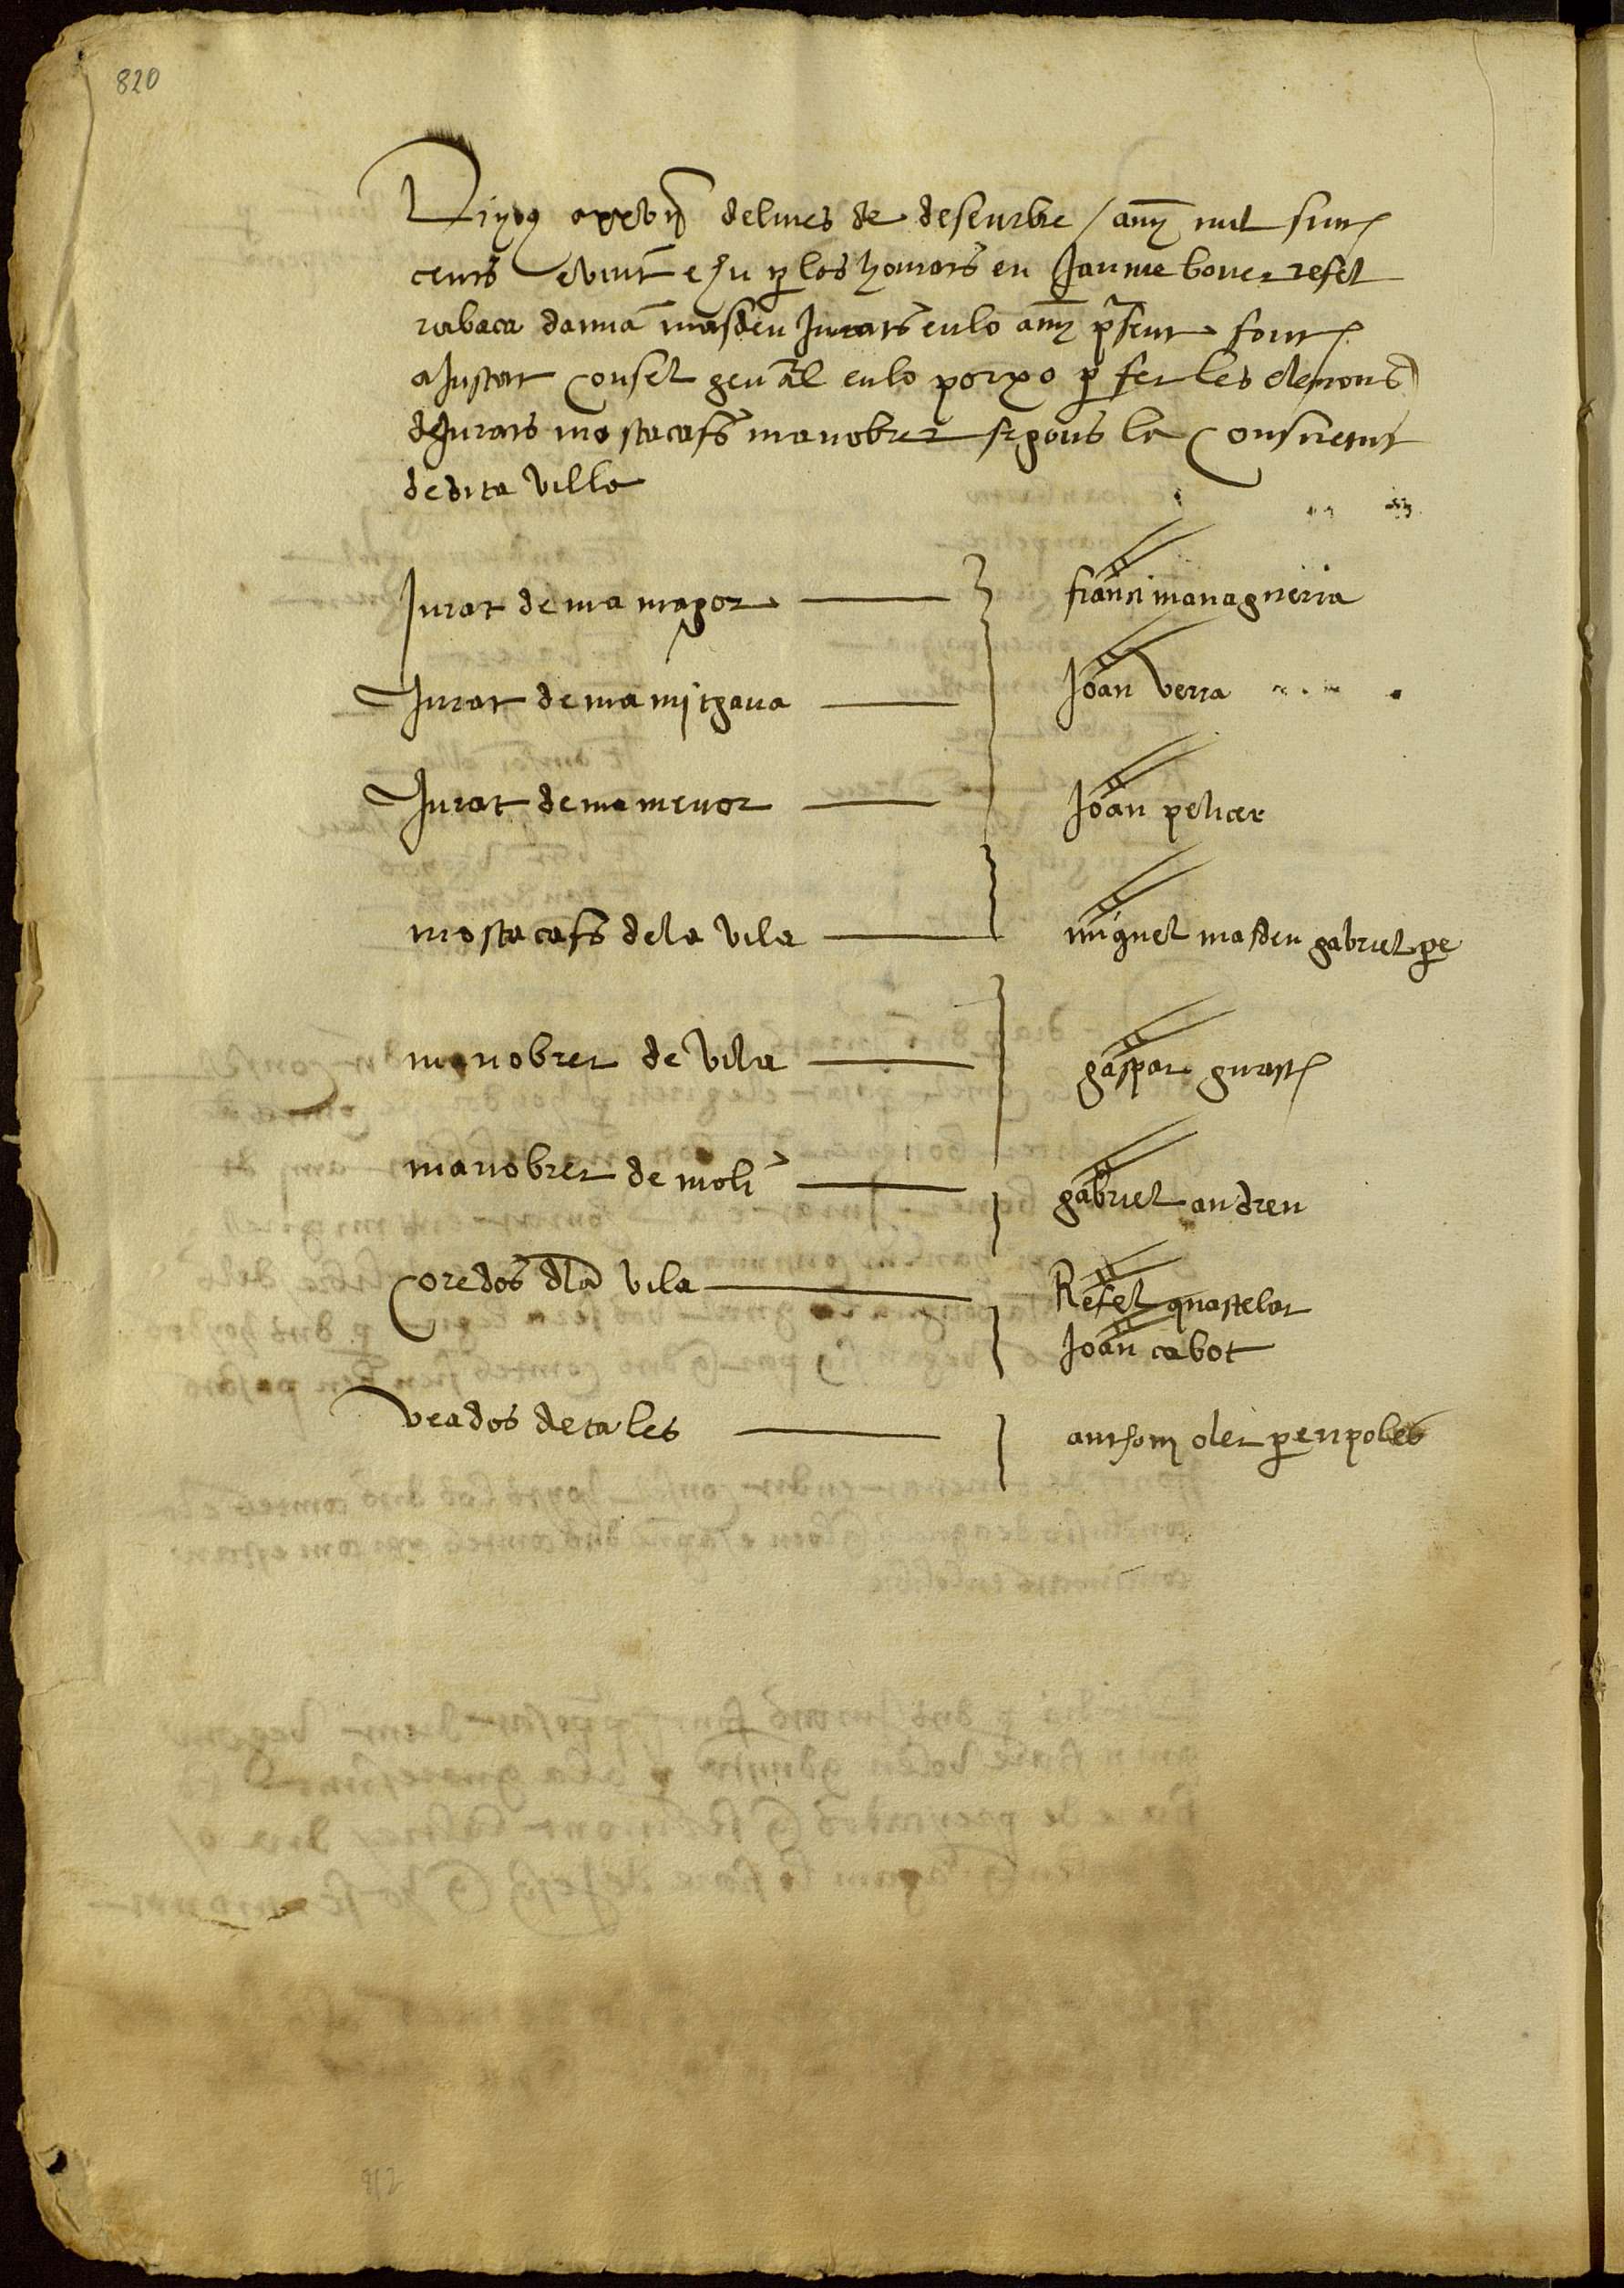 820
Dijous a xxvij delmes de desembre / any mil sinch
cents e vint e hu p los honrats en Jaume bover refel
rabaca damia masdeu Jurats en lo any p̃sent font
aJustat Consel genãl en lo porxo p fer les elecions
de Jurats mostacafs manobrer segons la Consuetut
de dita villa
Jurat de ma magor
franci managuerra
Jurat de ma mitgana
Joan verra
Jurat de ma menor
Joan pelicer
mostacafs dela vila
miquel masdeu gabriel pe
manobrer de vila
gaspar guasch
manobrer de moli
gabriel andreu
Coredos dla vila
Refel quastelar
Joan cabot
veados de tales
anthoni oler pere npoles